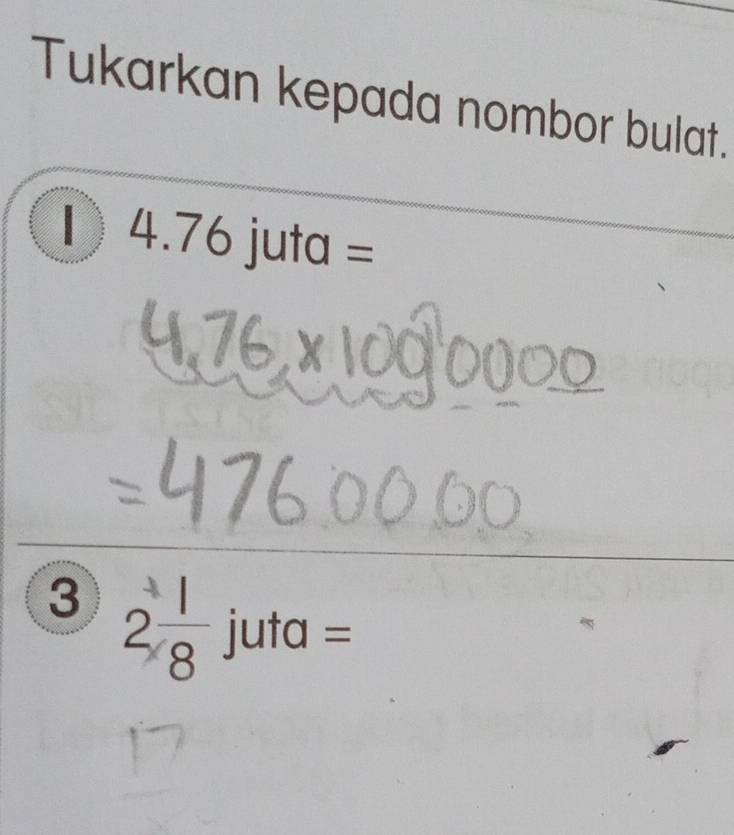 Tukarkan kepada nombor bulat.
1 4.76 juta =
4.76 x 1000000
= 4760000
3 2 1/8 juta =
17